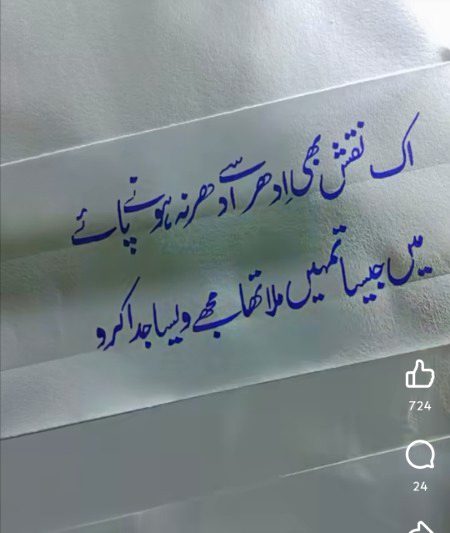 اک نقش بھی اِدھر سے اُدھر نہ ہونے پائے
میں جیسا تمہیں ملا تھا مجھے ویسا جدا کرو
724
24